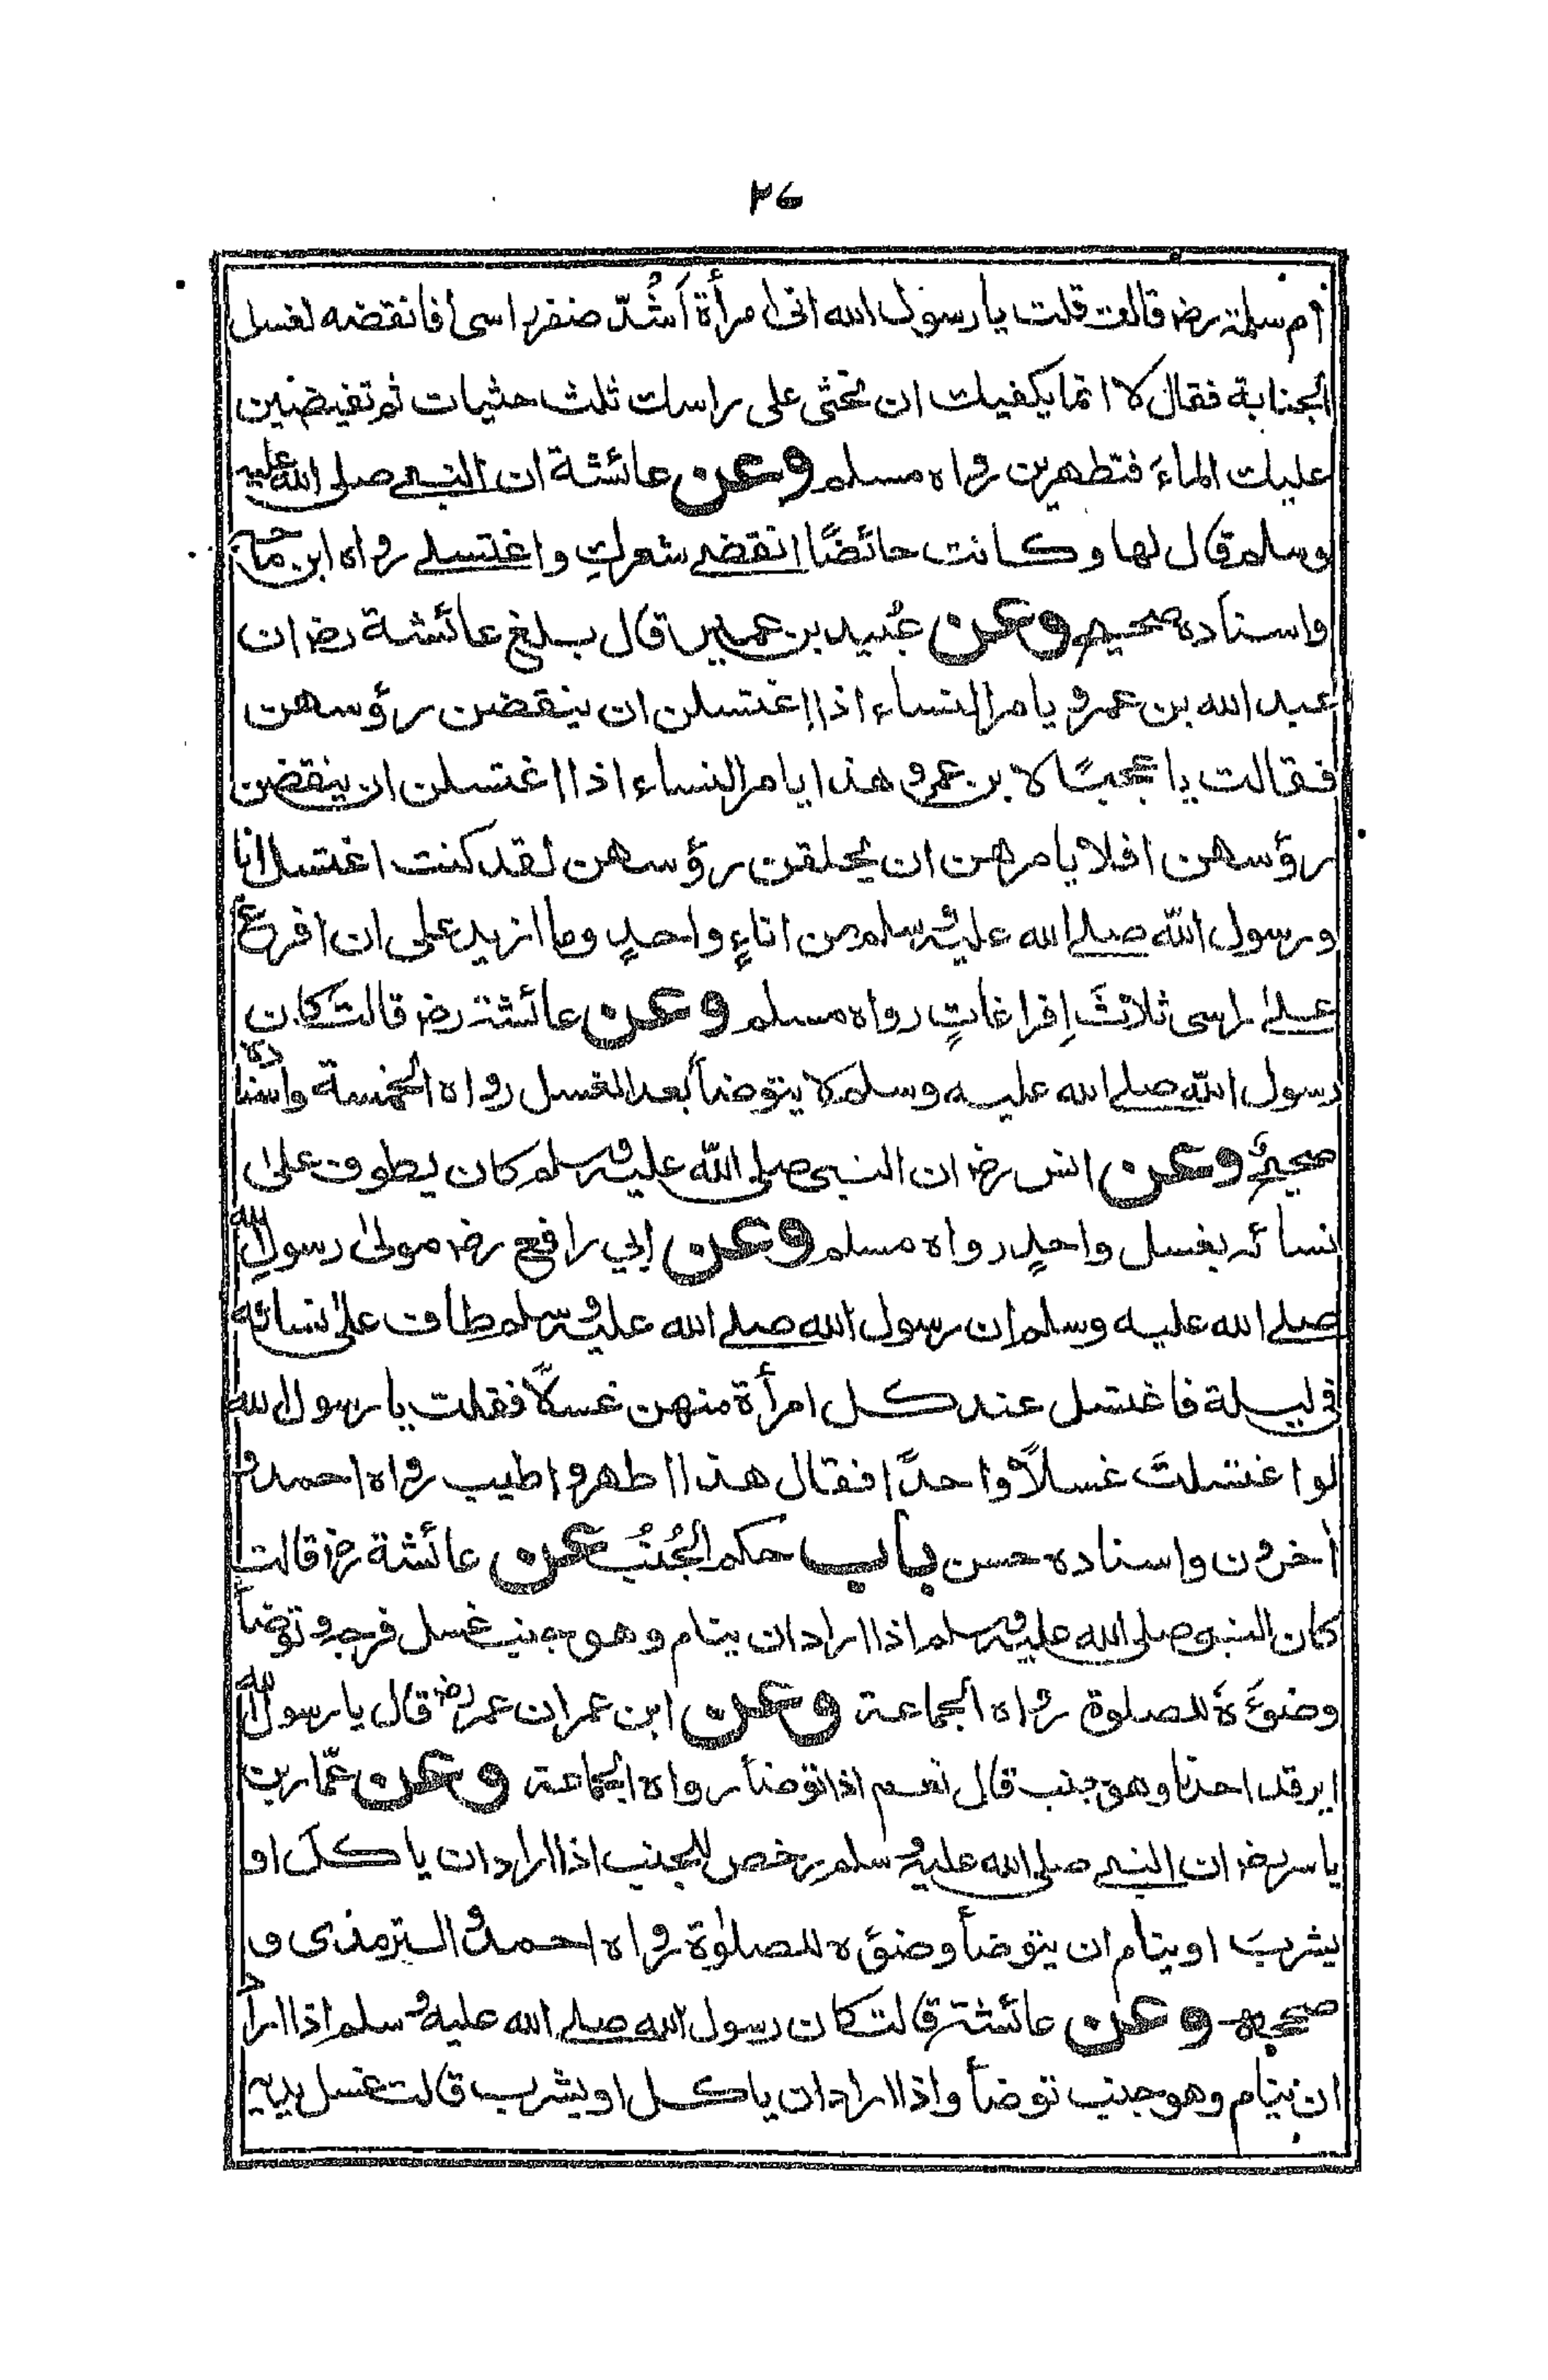 ٢٦
أم سلمة رضـ قالت قلت يا رسول الله انى امرأة أَشُدّ ضفر راسى أفانقضه لغسل
الجنابة فقال لا انما يكفيك ان تحثى على راسك ثلث حثيات ثم تفيضين
عليك الماءَ فتطهرين رواه مسلم وعن عائشة ان النبي صلى الله عليه
وسلم قال لها وكانت حائضًا انقضى شعركِ واغتسلى رواه ابن ماجة
واسناده صحيح وعن عُبيد بن عمير قال بلغ عائشة رضـ ان
عبد الله بن عمرو يامر النساء اذا إغتسلن ان ينقضن رؤسهن
فقالت يا عجبًا لابن عمرو هذا يامر النساء اذا اغتسلن ان ينقضن
رؤسهن افلا يامرهن ان يحلقن رؤسهن لقد كنت اغتسل انا
ورسول الله صلى الله عليه وسلم من اناءٍ واحدٍ وما ازيد على ان افرغ
على راسى ثلاثَ اِفراغاتٍ رواه مسلم وعن عائشة رضـ قالت كان
رسول الله صلى الله عليه وسلم لا يتوضأ بعد الغسل رواه الخمسة واسناده
صحيح وعن انس رضـ ان النبى صلى الله عليه وسلم كان يطوف على
نسائه بغسل واحدٍ رواه مسلم وعن ابي رافع رضـ مولى رسولِ الله
صلى الله عليه وسلم ان رسول الله صلى الله عليه وسلم طاف على نسائه
فى ليلة فاغتسل عند كل امرأة منهن غسلًا فقلت يا رسول الله
لو اغتسلتَ غسلًا واحدًا فقال هذا اطهر واطيب رواه احمد و
أخرون واسناده حسن باب حكم الجُنُب عن عائشة رضـ قالت
كان النبى صلى الله عليه وسلم اذا اراد ان ينام وهو جنب غسل فرجه وتوضأ
وضوءَه للصلوة رواه الجماعة وعن ابن عمر ان عمر رضـ قال يا رسول الله
ايرقد احدنا وهو جنب قال نعم اذا توضأ رواه الجماعة وعن عمّار بن
ياسر رضـ ان النبي صلى الله عليه وسلم رخص للجنب اذا اراد ان ياكل او
يشرب او ينام ان يتوضأ وضوءه للصلوٰة رواه احمد والترمذى و
صححه وعن عائشة قالت كان رسول الله صلى الله عليه وسلم اذا اراد
ان ينام وهو جنب توضأ واذا اراد ان ياكل او يشرب قالت غسل يديه